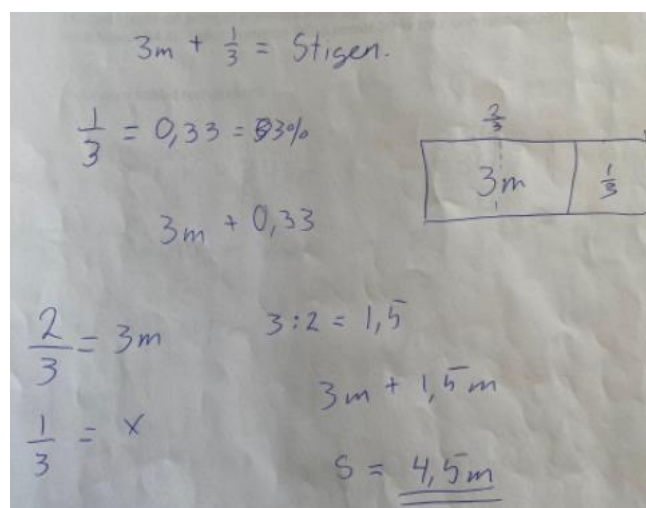 3m + 1/3 = Stigen.
1/3 = 0,33 = 33%
2/3
3m 1/3
3m + 0,33
2/3 = 3m
3:2 = 1,5
1/3 = x
3m + 1,5m
S = 4,5m